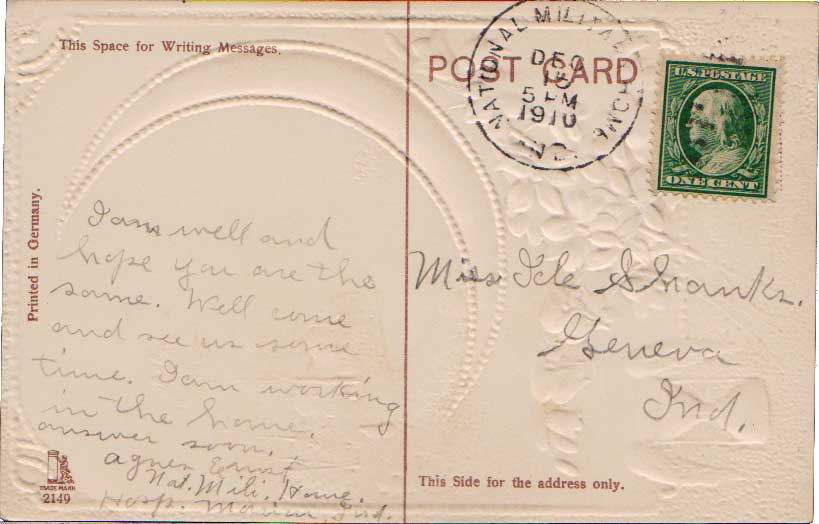 This Space for Writing Messages.
POST CARD
NATIONAL MILITARY HOME
DEC
5 PM
1910
IND.
U.S. POSTAGE
ONE CENT
Printed in Germany.
I am well and
hope you are the
same. Well come
and see us some
time. I am working
in the home.
answer soon.
Agnes Ernst
Nat. Mili. Home.
Hosp. Marion, Ind.
Miss Shanks.
Geneva
Ind.
TRADE MARK
2149
This Side for the address only.